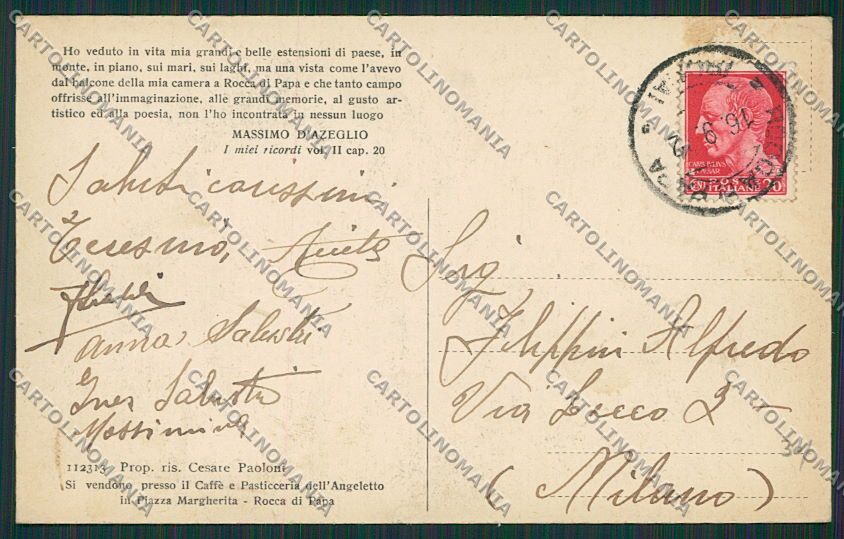 Ho veduto in vita mia grandi e belle estensioni di paese, in
monte, in piano, sui mari, sui laghi, ma una vista come l'avevo
dal balcone della mia camera a Rocca di Papa e che tanto campo
offrisse all'immaginazione, alle grandi memorie, al gusto ar-
tistico ed alla poesia, non l'ho incontrata in nessun luogo
MASSIMO D'AZEGLIO
I miei ricordi vol. II cap. 20
Saluti carissimi
Teresina, Anita
Anna Salustri
Ines Salustri
Massimina
112313 Prop. ris. Cesare Paoloni
Si vendono presso il Caffè e Pasticceria dell'Angeletto
in Piazza Margherita - Rocca di Papa
ROCCA DI PAPA
16 9
CAIVS IVLIVS
CAESAR
POSTE
ITALIANE
20
Sig
Filippini Alfredo
Via Lecco 2
(Milano)
CARTOLINOMANIA